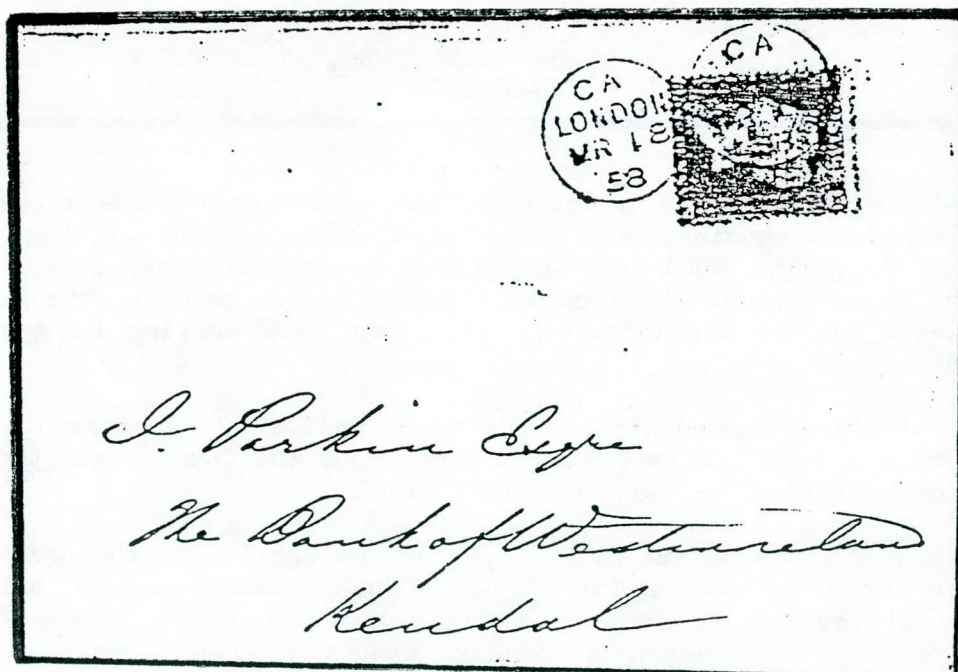 CA
CA
LONDON
MR 18
58
I. Perkins Esqre
The Bank of Westmoreland
Kendal